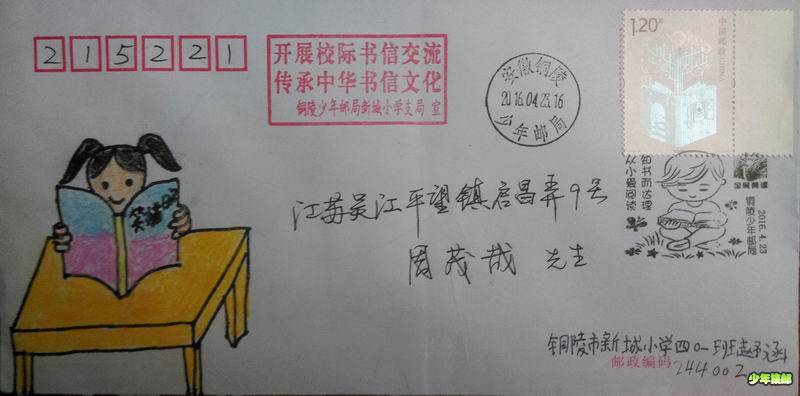 215221
开展校际书信交流
传承中华书信文化
铜陵少年邮局新城小学支局 宣
安徽铜陵
2016.04.23.16
少年邮局
1.20元
中国邮政
CHINA
知书而达理
从小爱阅读
全民阅读
铜陵少年邮局
2016.4.23
笑猫日记
江苏吴江平望镇启昌弄9号
周茂哉 先生
铜陵市新城小学四(一)班赵子涵
邮政编码
244002
少年集邮